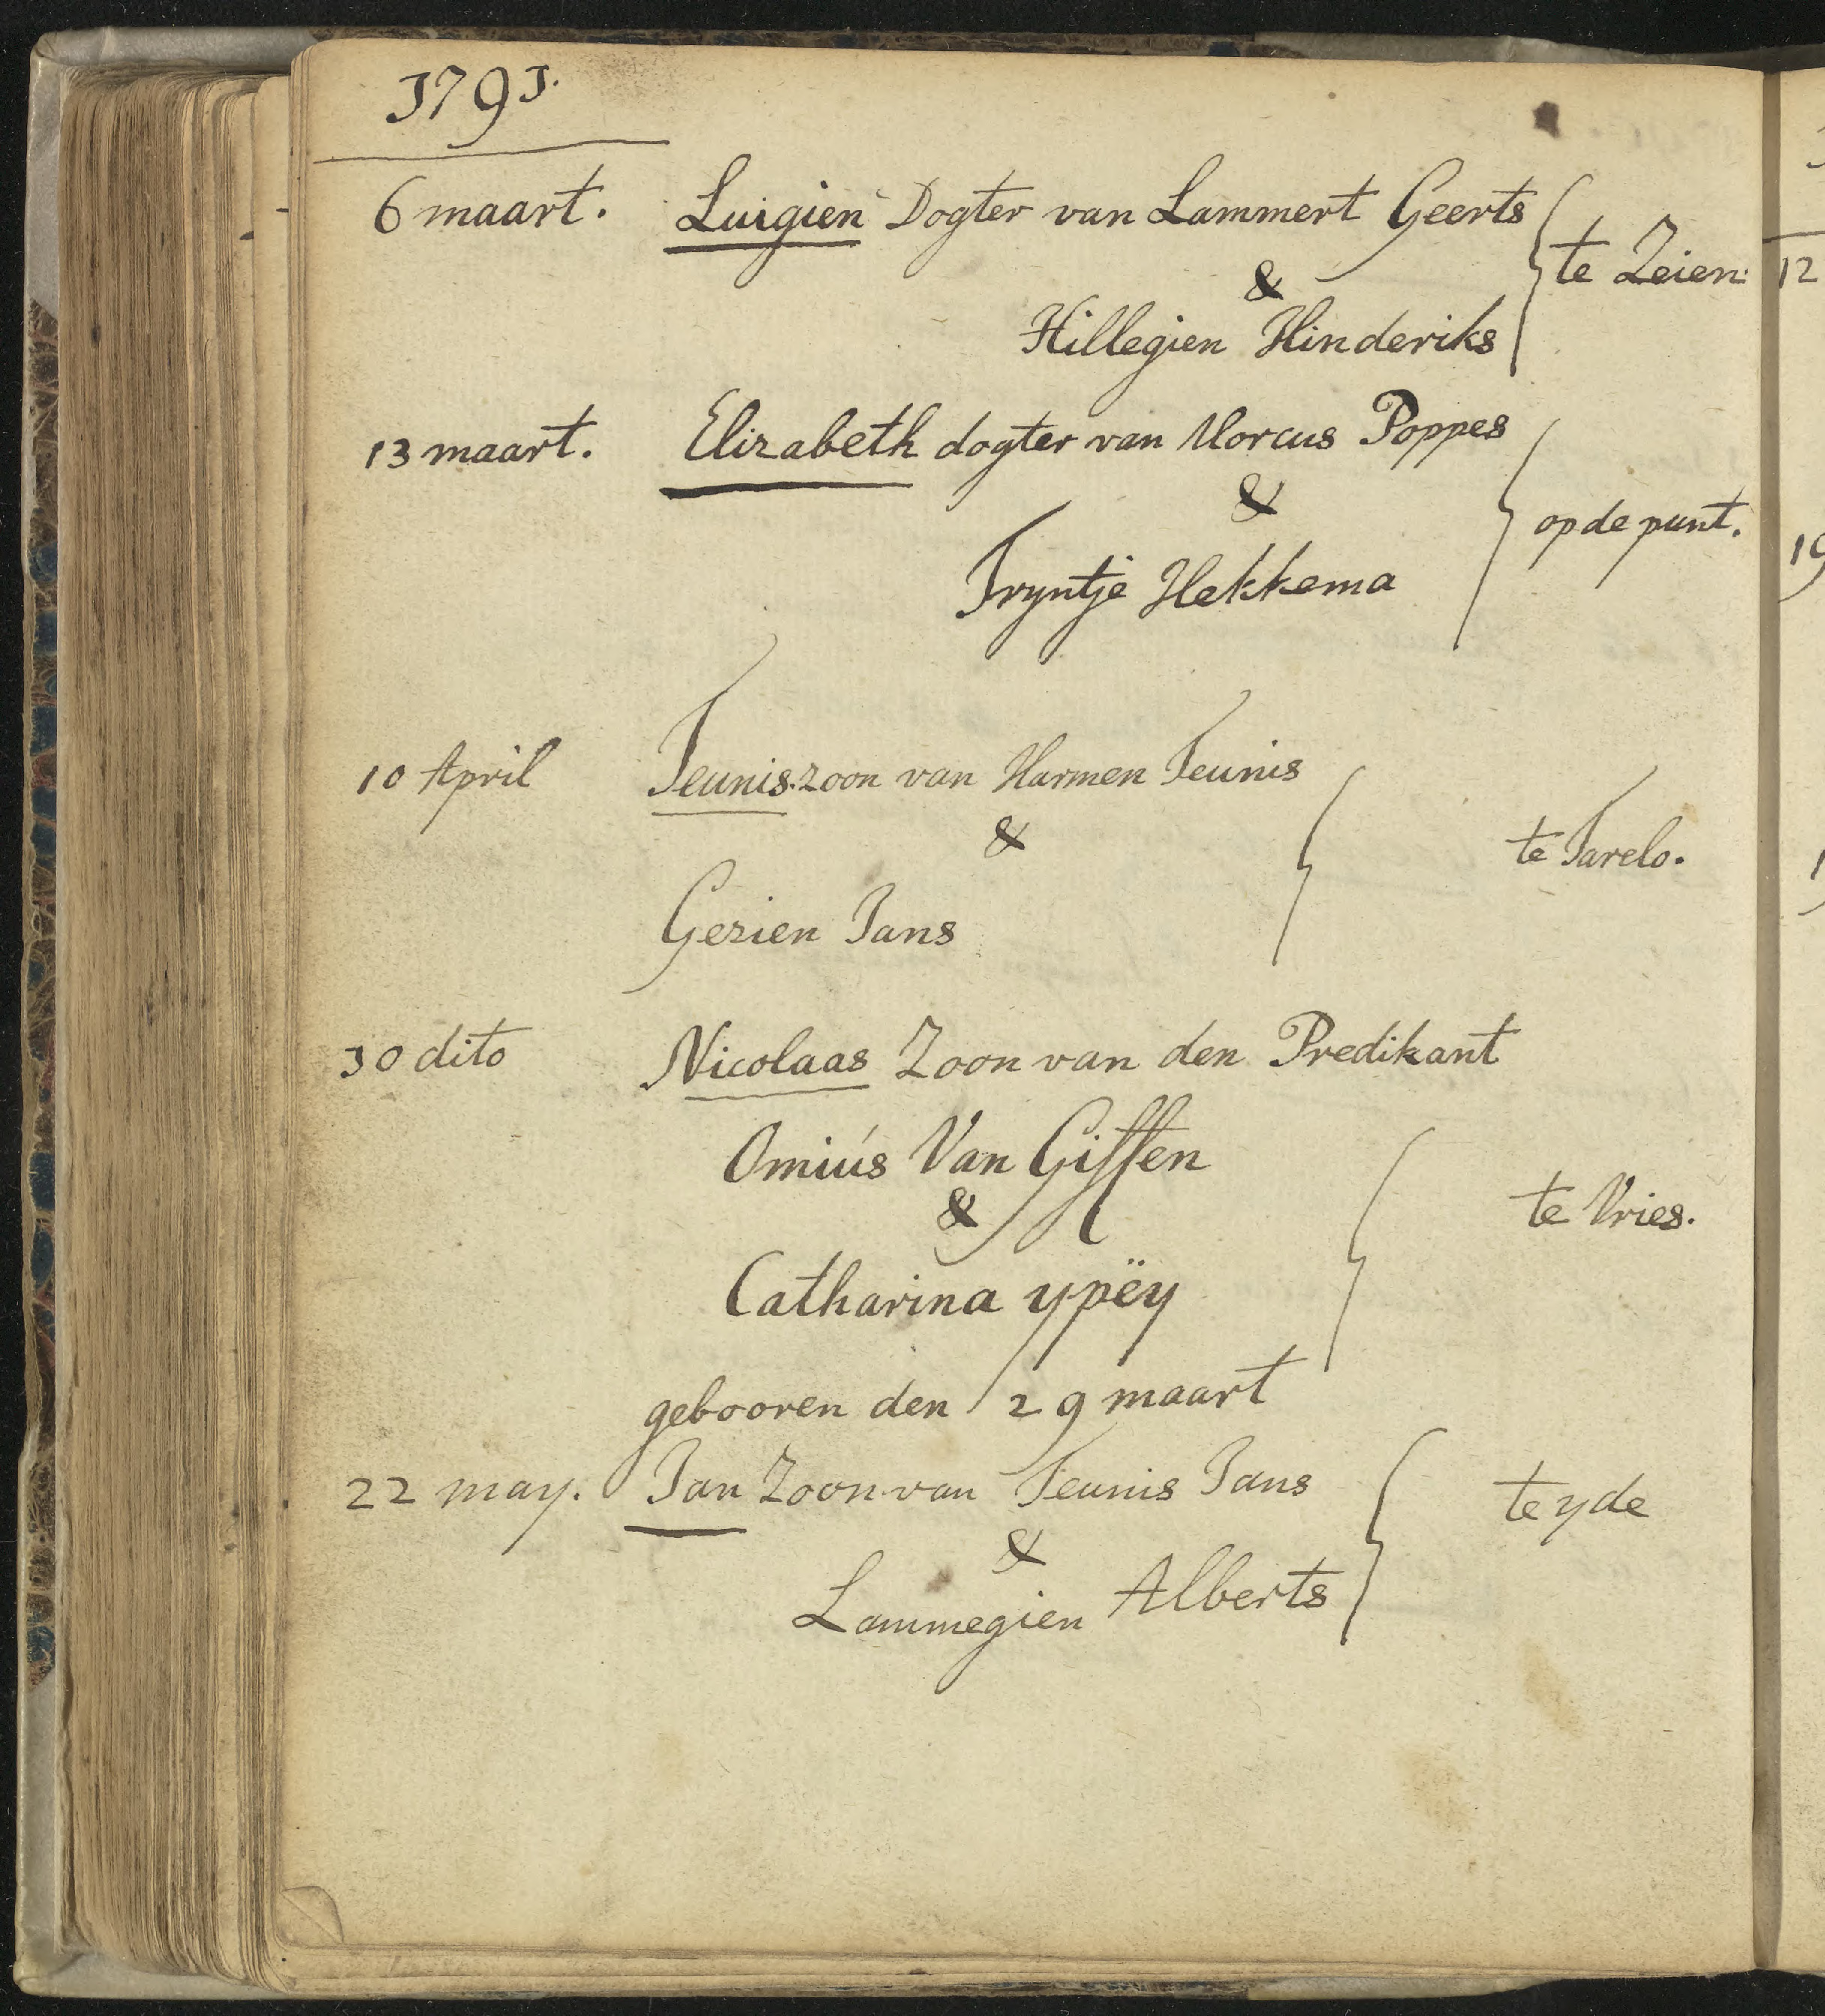 1791.
6 maart. Luigien Dogter van Lammert Geerts
&
te Zeien.
Hillegien Hinderiks
13 maart. Elizabeth dogter van Marcus Poppes
&
op de punt.
Tryntje Hekkema
10 April Teunis. zoon van Harmen Teunis
&
te Tarelo.
Gezien Jans
10 dito Nicolaas Zoon van den Predikant
Omiús Van Giffen
&
te Vries.
Catharina ypëy
gebooren den 29 maart
22 may. Jan Zoon van Teunis Jans
te yde
&
Lammegien Alberts
12
19